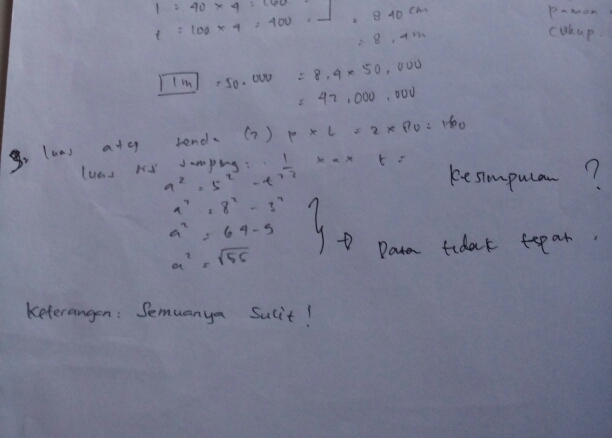 l = 40 x 4 = 160
t = 100 x 4 = 400
= 840 cm
= 8,4 m
Paman
cukup.
1 m = 50.000 = 8,4 x 50,000
= 42,000,000
3. luas atap tenda (2) p x l = 2 x 80 = 160
luas sisi samping: 1/2 x a x t =
a² = 5² - t²
a² = 8² - 3²
a² = 64 - 9
a² = √55
Kesimpulan ?
Data tidak tepat.
Keterangan: Semuanya Sulit!